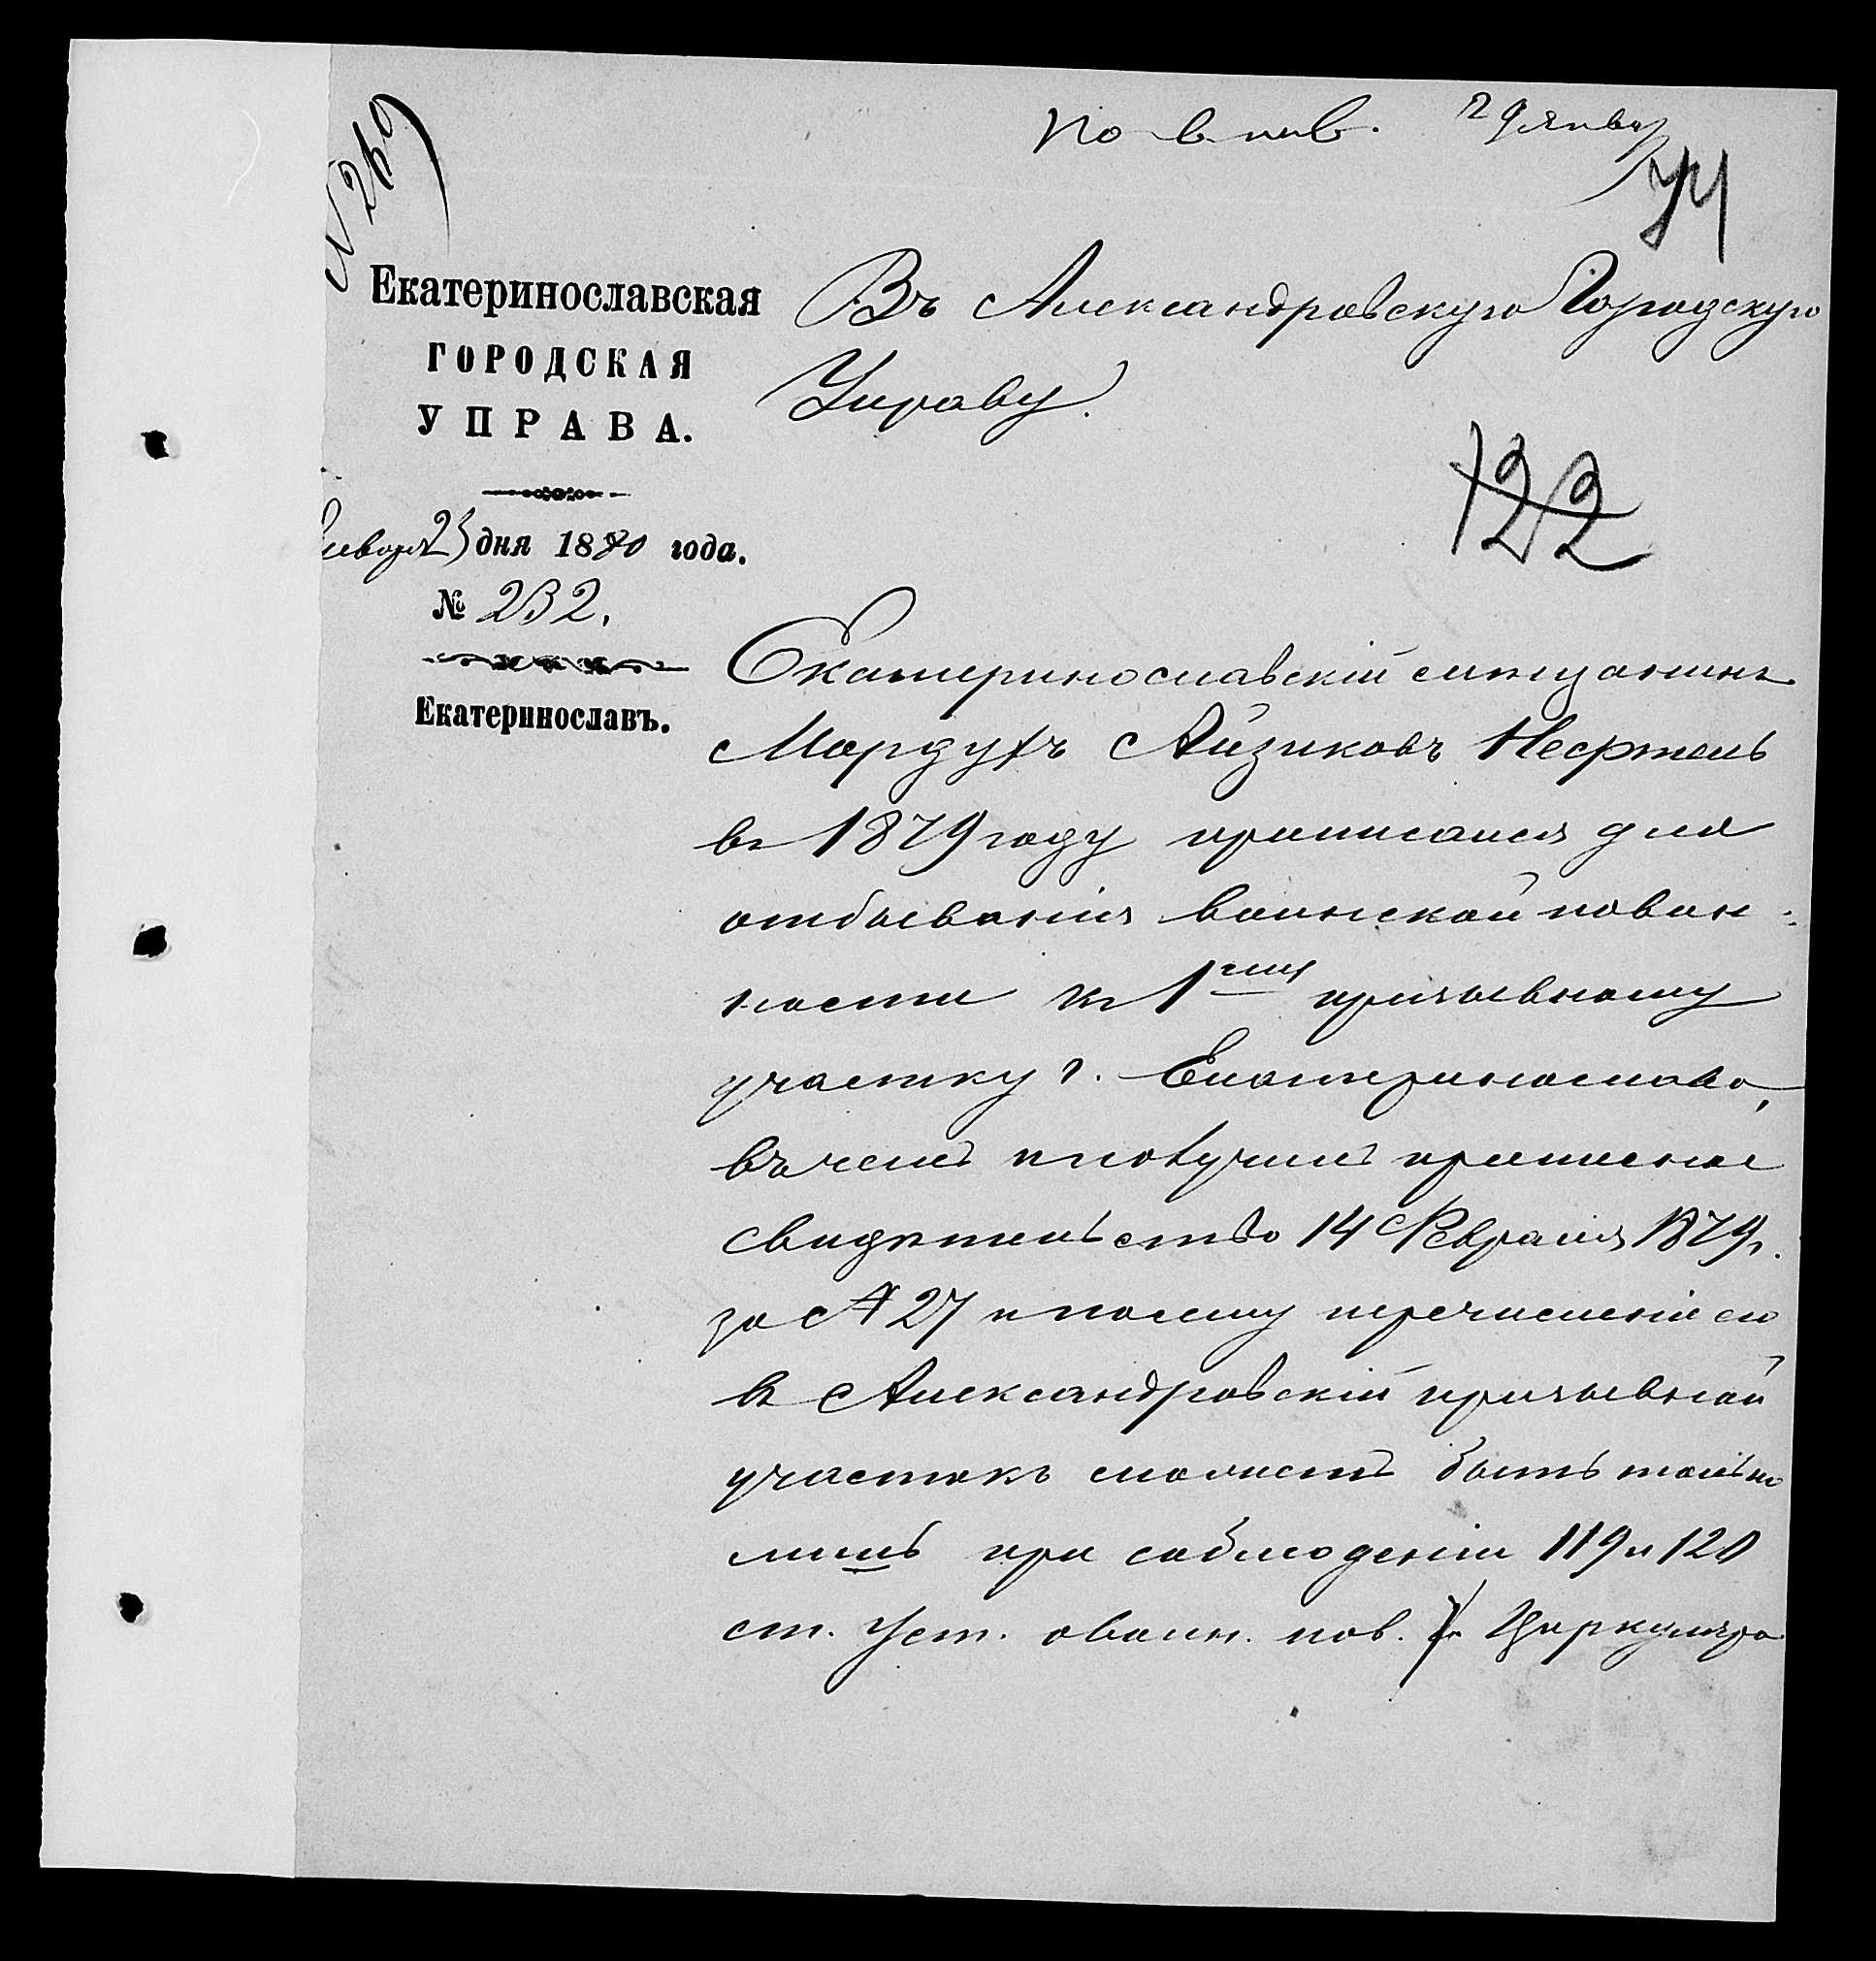 № 260
По в. пов. 29 январ
74
Екатеринославская
ГОРОДСКАЯ
УПРАВА.
Января 23 дня 1880 года.
№ 232.
Екатеринославъ.
Въ Александровскую Городскую
Управу.
122
Екатеринославскій мѣщанинъ
Мордухъ Айзиковъ Нефтель
въ 1879 году приписался для
отбыванія воинской повин-
ности къ 1му призывному
участку г. Екатеринослава,
въ чемъ и получилъ приписное
свидѣтельство 14 Февраля 1879 г.
за № 27 и посему перечисленіе его
въ Александровскій призывной
участокъ можетъ быть только
лишь при соблюденіи 119 и 120
ст. Уст. о воин. пов. Циркуляра